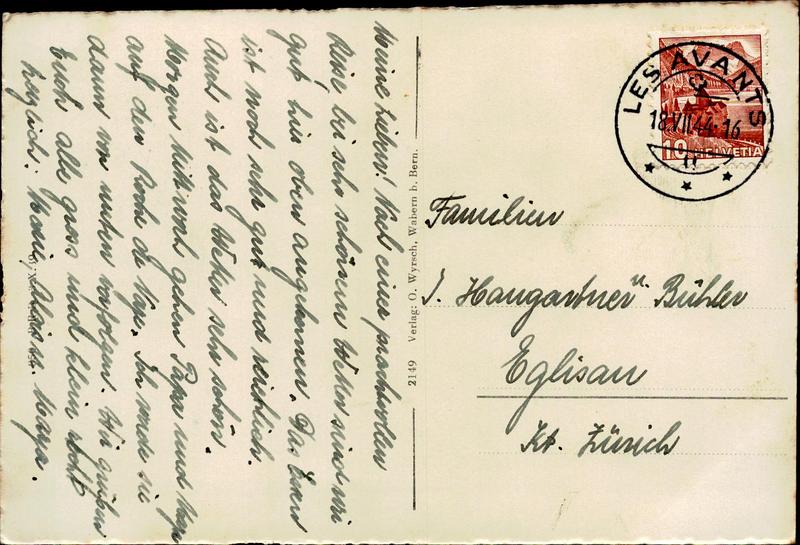 Meine Lieben! Nach einer prachtvollen
Reise bei sehr schönem Wetter sind wir
gut hier oben angekommen. Das Essen
ist noch sehr gut und reichlich.
Auch ist das Wetter sehr schön.
Morgen Mittwoch gehen Papa und
auf den Roche de Naye. Ich werde sie
dann von unten verfolgen. Wir grüßen
Euch alle gross und klein recht
herzlich:
2149 Verlag: O. Wyrsch, Wabern b. Bern.
LES AVANTS
18.VII.44-16
10 HELVETIA
Familien
J. Hangartner u. Bühler
Eglisau
Kt. Zürich